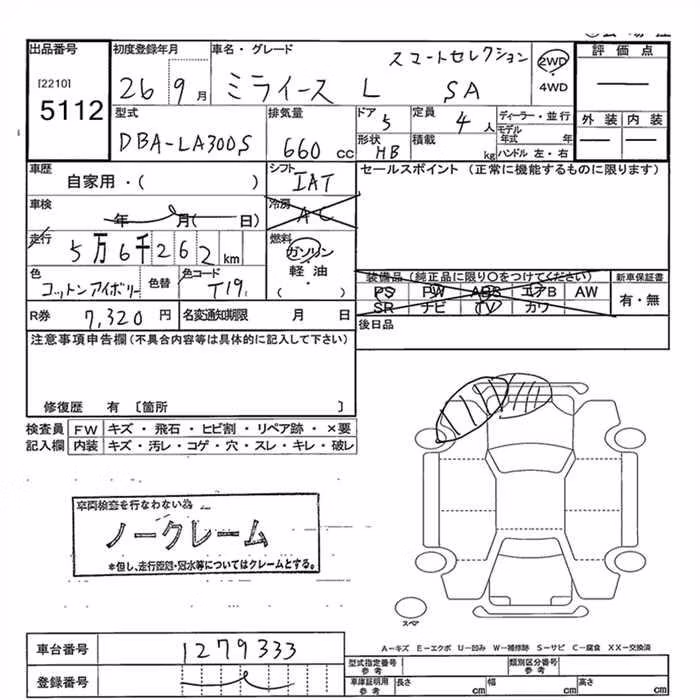 出品番号 初度登録年月 車名・グレード スマートセレクション 2WD 評価点
[2210] 26 9月 ミライース L SA 4WD
5112
型式 排気量 ドア 5 定員 4人 ディーラー・並行 外装 内装
DBA-LA300S 660cc 形状 HB 積載 kg モデル年式 年
ハンドル 左・右
車歴 シフト セールスポイント (正常に機能するものに限ります)
自家用・( ) IAT
車検 冷房
年 月( 日) AC
走行 燃料
5万6千262km ガソリン
軽油
( )
色 色替 色コード 装備品 (純正品に限り○をつけてください) 新車保証書
コットンアイボリー T19 PS PW ABS エアB AW 有・無
SR ナビ TV カワ
R券 7,320円 名変通知期限 月 日 後日品
注意事項申告欄 (不具合内容等は具体的に記入して下さい)
修復歴 有 [箇所 ]
検査員 FW キズ・飛石・ヒビ割・リペア跡・×要
記入欄 内装 キズ・汚レ・コゲ・穴・スレ・キレ・破レ
車両検査を行なわない為
ノークレーム
*但し、走行距離・冠水等についてはクレームとする。
スペア
A-キズ E-エクボ U-凹み W-補修跡 S-サビ C-腐食 XX-交換済
車台番号 1279333 型式指定番号 参考 類別区分番号 参考
登録番号 車庫証明用 参考 長さ cm 幅 cm 高さ cm